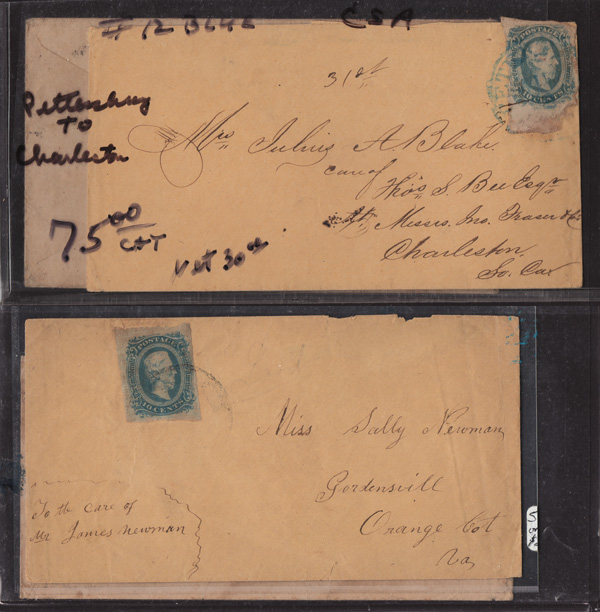 # 12 BLUE
CSA
Pettersburg
TO
Charleston
75⁰⁰
CAT
Net 30⁰⁰
POSTAGE
10 CENTS
31st
Mrs Julius A Blake.
care of
Thos. S. Bee Esqr
Messrs. Jno. Fraser & Co
Charleston.
So. Car
POSTAGE
10 CENTS
Miss Sally Newman
Gordensvill
Orange Cot
Va
To the care of
Mr James Newman